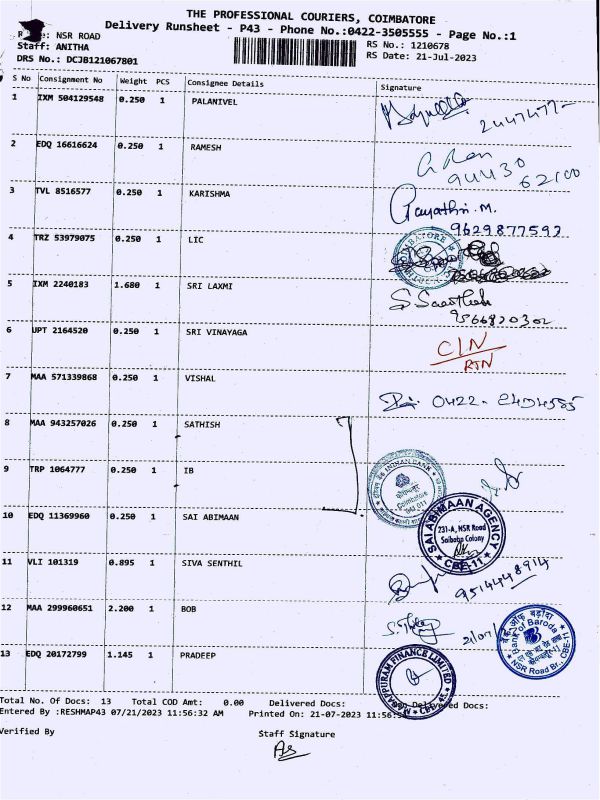 THE PROFESSIONAL COURIERS, COIMBATORE
Delivery Runsheet - P43 - Phone No.:0422-3505555 - Page No.:1
: NSR ROAD
RS No.: 1210678
Staff: ANITHA
RS Date: 21-Jul-2023
DRS No.: DCJB121067801
S No Consignment No Weight PCS Consignee Details Signature
1 IXM 504129548 0.250 1 PALANIVEL
2447477-
2 EDQ 16616624 0.250 1 RAMESH
94430
62100
3 TVL 8516577 0.250 1 KARISHMA
Gayathri. M.
9629877592
4 TRZ 53979075 0.250 1 LIC
COIMBATORE
5 IXM 2240183 1.680 1 SRI LAXMI
9566820302
6 UPT 2164520 0.250 1 SRI VINAYAGA
CIN
RTN
7 MAA 571339868 0.250 1 VISHAL
0422-
8 MAA 943257026 0.250 1 SATHISH
9 TRP 1064777 0.250 1 IB
INDIAN BANK
कोयम्बतूर
Coimbatore
641 011
10 EDQ 11369960 0.250 1 SAI ABIMAAN
SAI ABIMAAN AGENCY
231-A, NSR Road
Saibaba Colony
CBE-11
11 VLI 101319 0.895 1 SIVA SENTHIL
9514448914
12 MAA 299960651 2.200 1 BOB
21/07/
बैंक ऑफ बड़ौदा
Bank of Baroda
NSR Road Br., CBE-11
13 EDQ 20172799 1.145 1 PRADEEP
MANAPPURAM FINANCE LIMITED
Total No. Of Docs: 13 Total COD Amt: 0.00 Delivered Docs: Non Delivered Docs:
Entered By :RESHMAP43 07/21/2023 11:56:32 AM Printed On: 21-07-2023 11:56:
Verified By Staff Signature